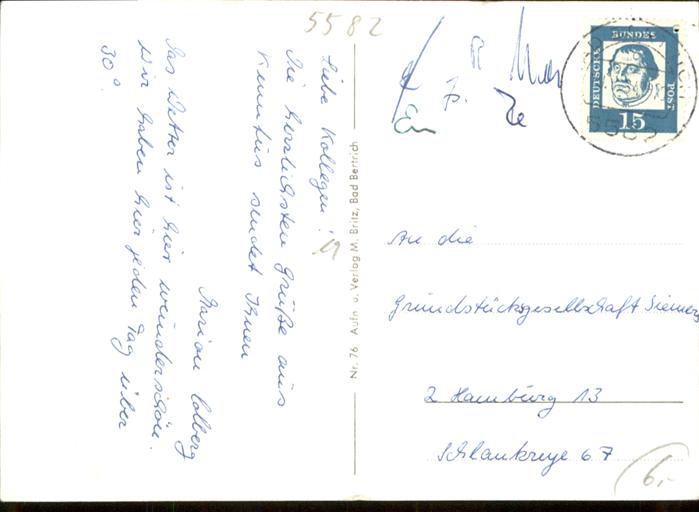 5582
Liebe Kollegen!
Die herzlichsten Grüße aus
Kenntus sendet Ihnen
Marion Colberg
Das Wetter ist hier wunderschön.
Wir haben hier jeden Tag über
30°.
Nr. 76 Aufn. u. Verlag M. Britz, Bad Bertrich
DEUTSCHE BUNDESPOST
15
An die
Grundstücksgesellschaft Siemers
2 Hamburg 13
Schlankreye 67
6,-